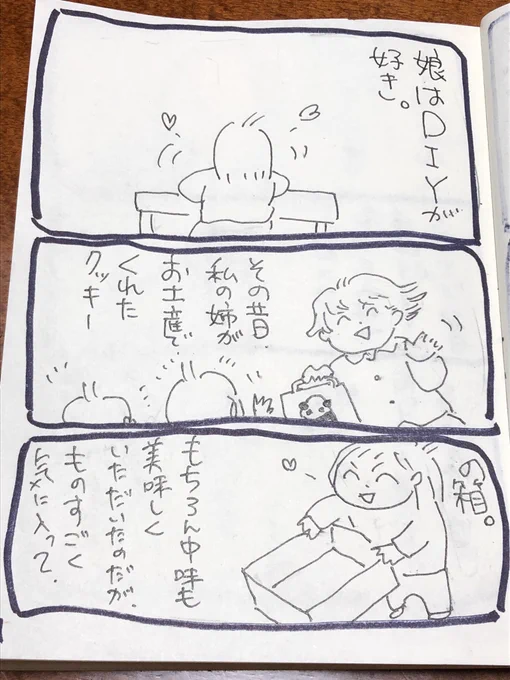 娘はDIYが
好き。
その昔
私の姉が
お土産で
くれた
クッキー
の箱。
もちろん中味も
美味しく
いただいたのだが、
ものすごく
気に入って、